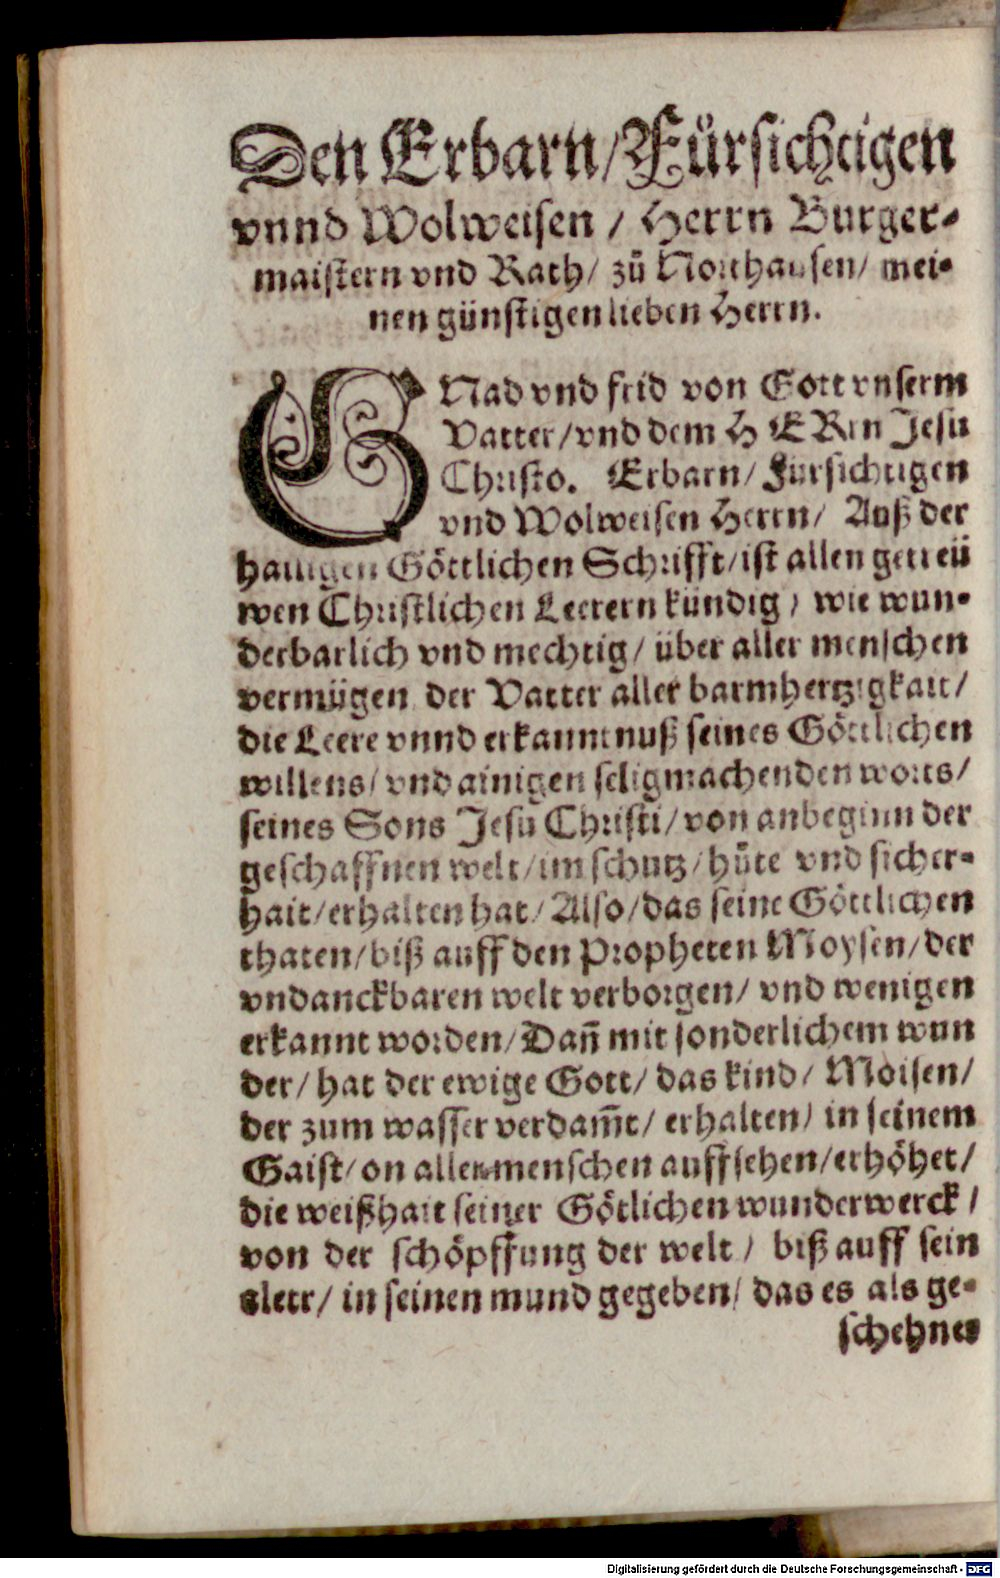 Den Erbarn/Fürsichtigen
vnnd Wolweisen / Herrn Burger-
maistern vnd Rath/ zů Northausen/ mei-
nen günstigen lieben Herrn.
GNad vnd frid von Gott vnserm
Vatter/vnd dem HERrn Jesu
Christo. Erbarn/ Fürsichtigen
vnd Wolweisen Herrn/ Auß der
hailigen Göttlichen Schrifft/ist allen getreü
wen Christlichen Leerern kündig / wie wun-
derbarlich vnd mechtig/ über aller menschen
vermügen der Vatter aller barmhertzigkait/
die Leere vnnd erkanntnuß seines Göttlichen
willens/ vnd ainigen seligmachenden worts/
seines Sons Jesu Christi/ von anbeginn der
geschaffnen welt/im schutz/hůte vnd sicher-
hait/erhalten hat/ Also/das seine Göttlichen
thaten/biß auff den Propheten Moysen/der
vndanckbaren welt verborgen/ vnd wenigen
erkannt worden/Dañ mit sonderlichem wun
der/ hat der ewige Gott/ das kind/ Moisen/
der zum wasser verdam̃t/ erhalten/ in seinem
Gaist/ on aller menschen auffsehen/erhöhet/
die weißhait seiner Götlichen wunderwerck /
von der schöpffung der welt / biß auff sein
alter/ in seinen mund gegeben/ das es als ge-
schehnes
Digitalisierung gefördert durch die Deutsche Forschungsgemeinschaft - DFG